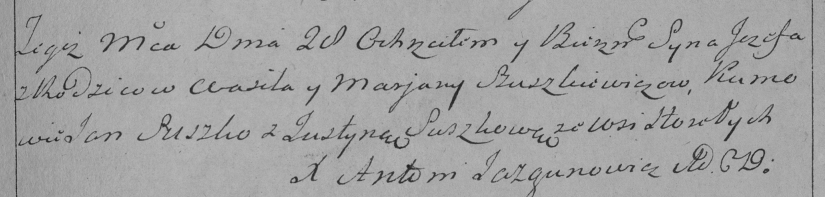 Tegoż Mca Dnia 28 Ochrzciłem y Bierzm Syna Jezefa
z Rodzicow Wasila y Marjany Ruszkiewiczow, Kumo
wie Jan Ruszko z Justyną Puszkową ze wsi
X Antoni Jazgunowicz